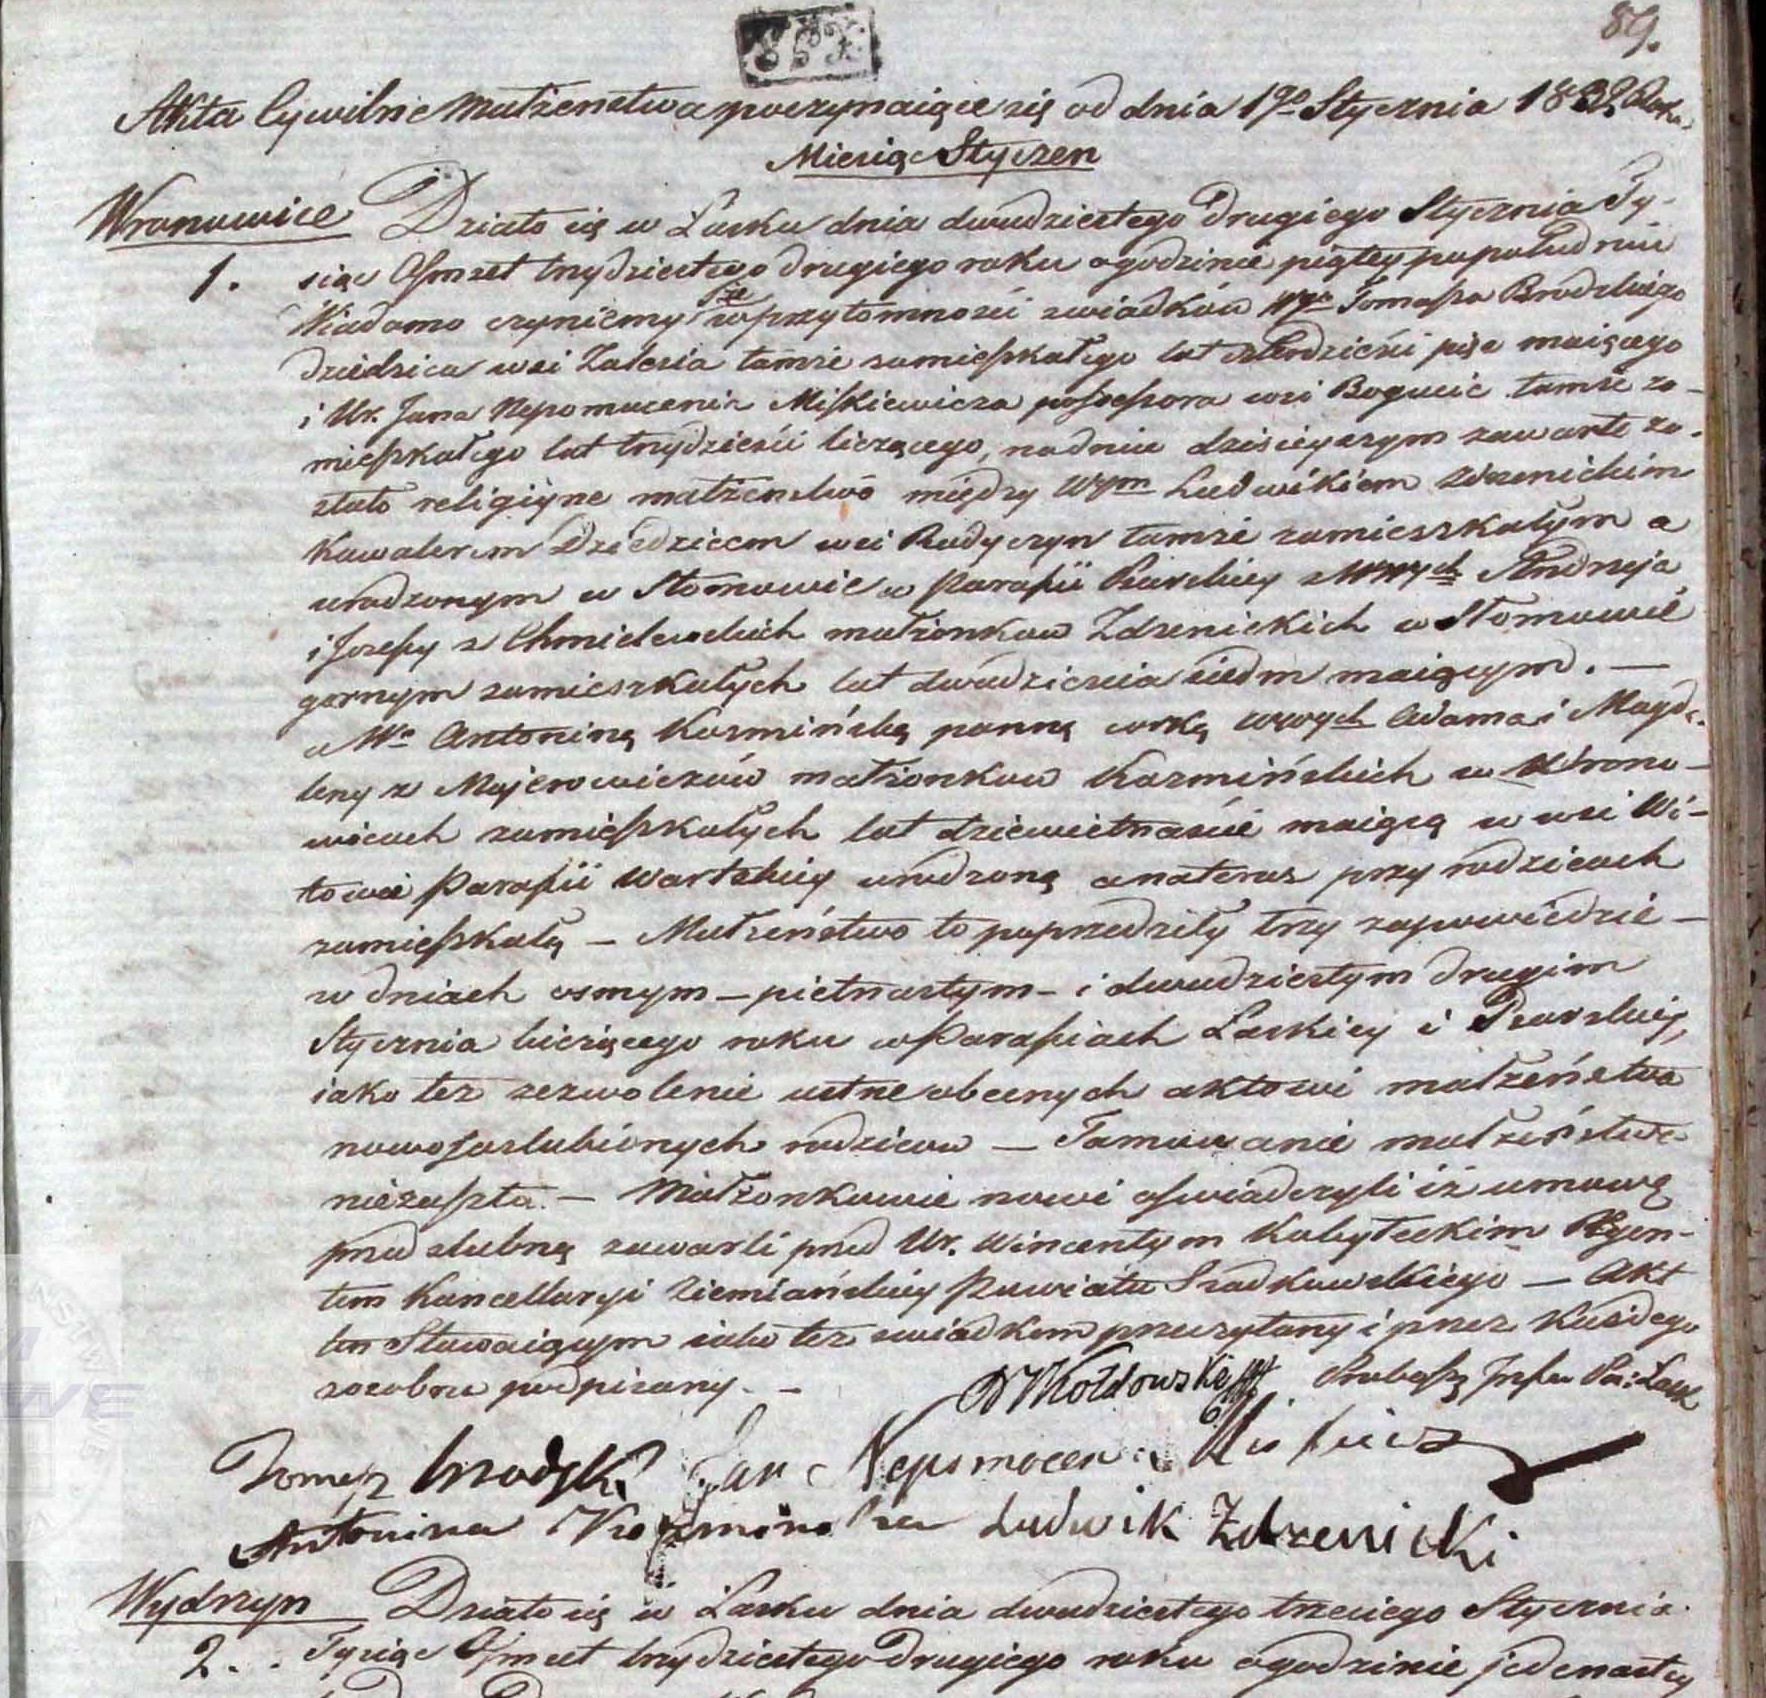 89.
Akta Cywilne Małżeństwa poczynaiące się od dnia 1go Stycznia 1832 Roku
Miesiąc Styczen
Wronowice Działo się w Łasku dnia dwudziestego drugiego Stycznia Ty-
1. siąc Ośmset trzydziestego drugiego roku o godzinie piątey popołudniu
Wiadomo czyniemy że w przytomności swiadków Wgo Tomasza Brodzkiego
dziedzica wsi Zalesia tamże zamieszkałego lat czterdzieści pięć maiącego
i Ur. Jana Nepomucena Miskiewicza possessora wsi Bogucic tamże za-
mieszkałego lat trzydzieści liczącego, na dniu dzisieyszym zawarte zo-
stało religiyne małżenstwo między Wym Ludwikiem Zdzenickim
Kawalerem Dziedzicem wsi Rudyczyn tamże zamieszkałym a
urodzonym w Stomowie w Parafii Psarskiey z Wwych Andrzeja
i Jozefy z Chmielewskich małżonkow Zdzenickich w Stomowie
gornym zamieszkałych lat dwadzieścia siedm maiącym. —
a Wą Antoniną Kozmińską panną corką Wwych Adama i Magda-
leny z Majerowiczów małżonkow Kozmińskich w Wrono-
wicach zamieszkałych lat dziewietnaście maiącą w wsi Wi-
towie Parafii Wartskiey urodzoną a nateraz przy rodzicach
zamieszkałą — Małżeństwo to poprzedziły trzy zapowiedzie —
w dniach osmym — pietnastym — i dwudziestym drugim
Stycznia bieżącego roku w Parafiach Łaskiey i Psarskiey,
iako też zezwolenie ustne obecnych aktowi małżeństwa
nowozaslubionych rodzicow — Tamowanie małżeństwa
niezaszło. — Małżonkowie nowi oświadczyli iż umowę
przedslubną zawarli przed Ur. Wincentym Kobyłeckim Rejen-
tem Kancellaryi Ziemiańskiey Powiatu Szadkowskiego — Akt
ten Stawaiącym iako też swiadkom przeczytany i przez każdego
zosobna podpisany. —
Kołdowski Proboszcz Par: Łask
Tomasz Brodzki Jan Nepomucen Miskiewicz
Antonina Kozminska Ludwik Zdzenicki
Wydrzyn Działo się w Łasku dnia dwudziestego trzeciego Stycznia
2. Tysiąc Ośmset trzydziestego drugiego roku o godzinie jedenastey